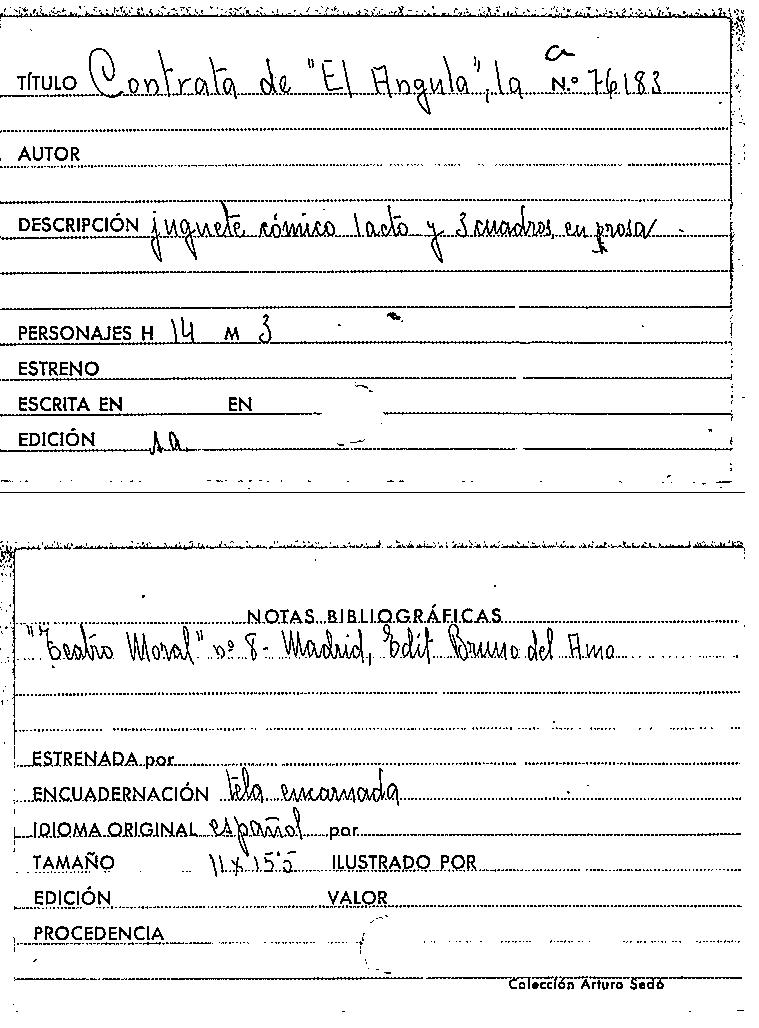 a
TÍTULO Contrata de "El Angula", la N.º 76183
AUTOR
DESCRIPCIÓN juguete cómico 1 acto y 3 cuadros, en prosa
PERSONAJES H 14 M 3
ESTRENO
ESCRITA EN EN
EDICIÓN 1a
NOTAS BIBLIOGRÁFICAS
"Teatro Moral" nº 8 - Madrid, Edit Bruno del Amo
ESTRENADA por
ENCUADERNACIÓN tela encarnada
IDIOMA ORIGINAL español por
TAMAÑO 11 x 15'5 ILUSTRADO POR
EDICIÓN VALOR
PROCEDENCIA
Colección Arturo Sedó